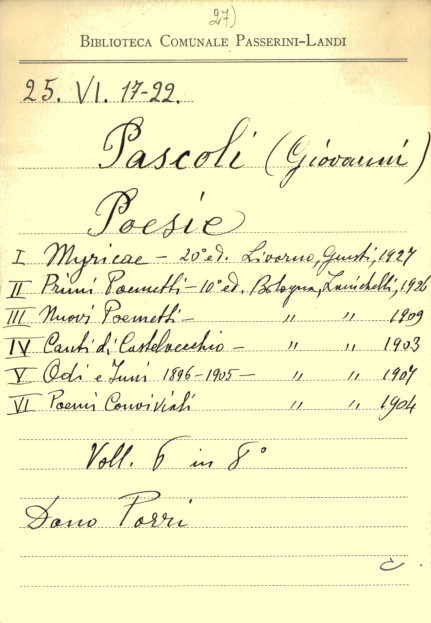 27)
BIBLIOTECA COMUNALE PASSERINI-LANDI
25. VI. 17-22.
Pascoli (Giovanni)
Poesie
I Myricae - 20° ed. Livorno, Giusti, 1927
II Primi Poemetti - 10° ed. Bologna, Zanichelli, 1926
III Nuovi Poemetti - " " 1909
IV Canti di Castelvecchio - " " 1903
V Odi e Inni 1896-1905 - " " 1907
VI Poemi Conviviali " " 1904
Voll. 6 in 8°
Dono Porri
c.